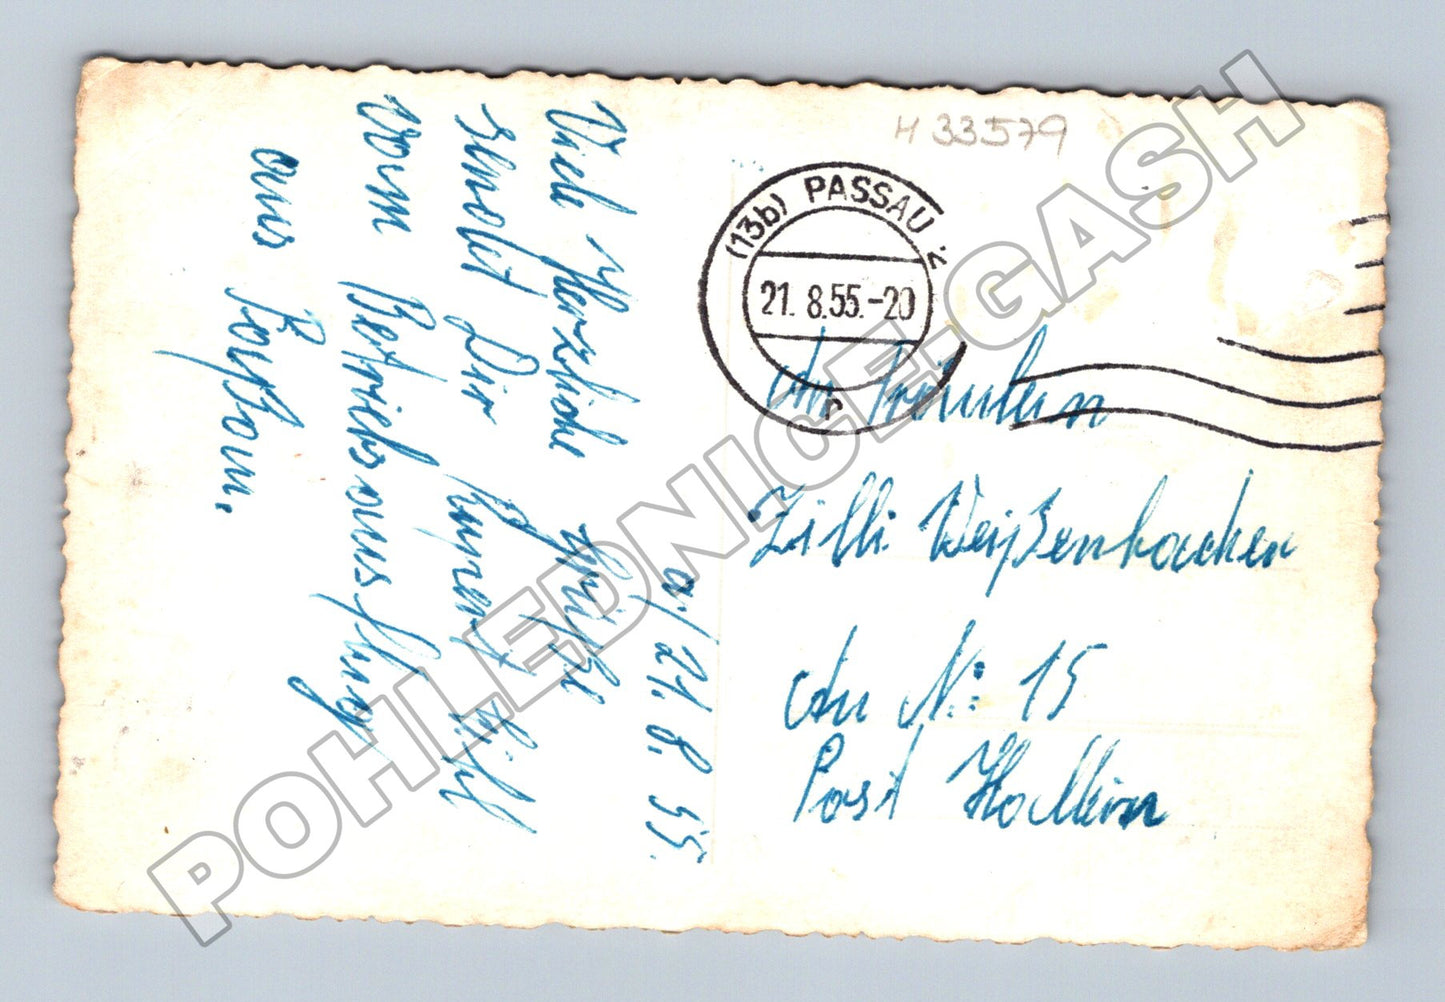 H 33579
(13b) PASSAU 2
21. 8. 55.-20
P
An Fräulein
Zilli Weißenbacher
Au N: 15
Post Hallein
a/ 21. 8. 55.
Viele Herzliche Grüße
sendet Dir
vom Betriebsausflug
aus Passau.
POHLEDNICE-GASH